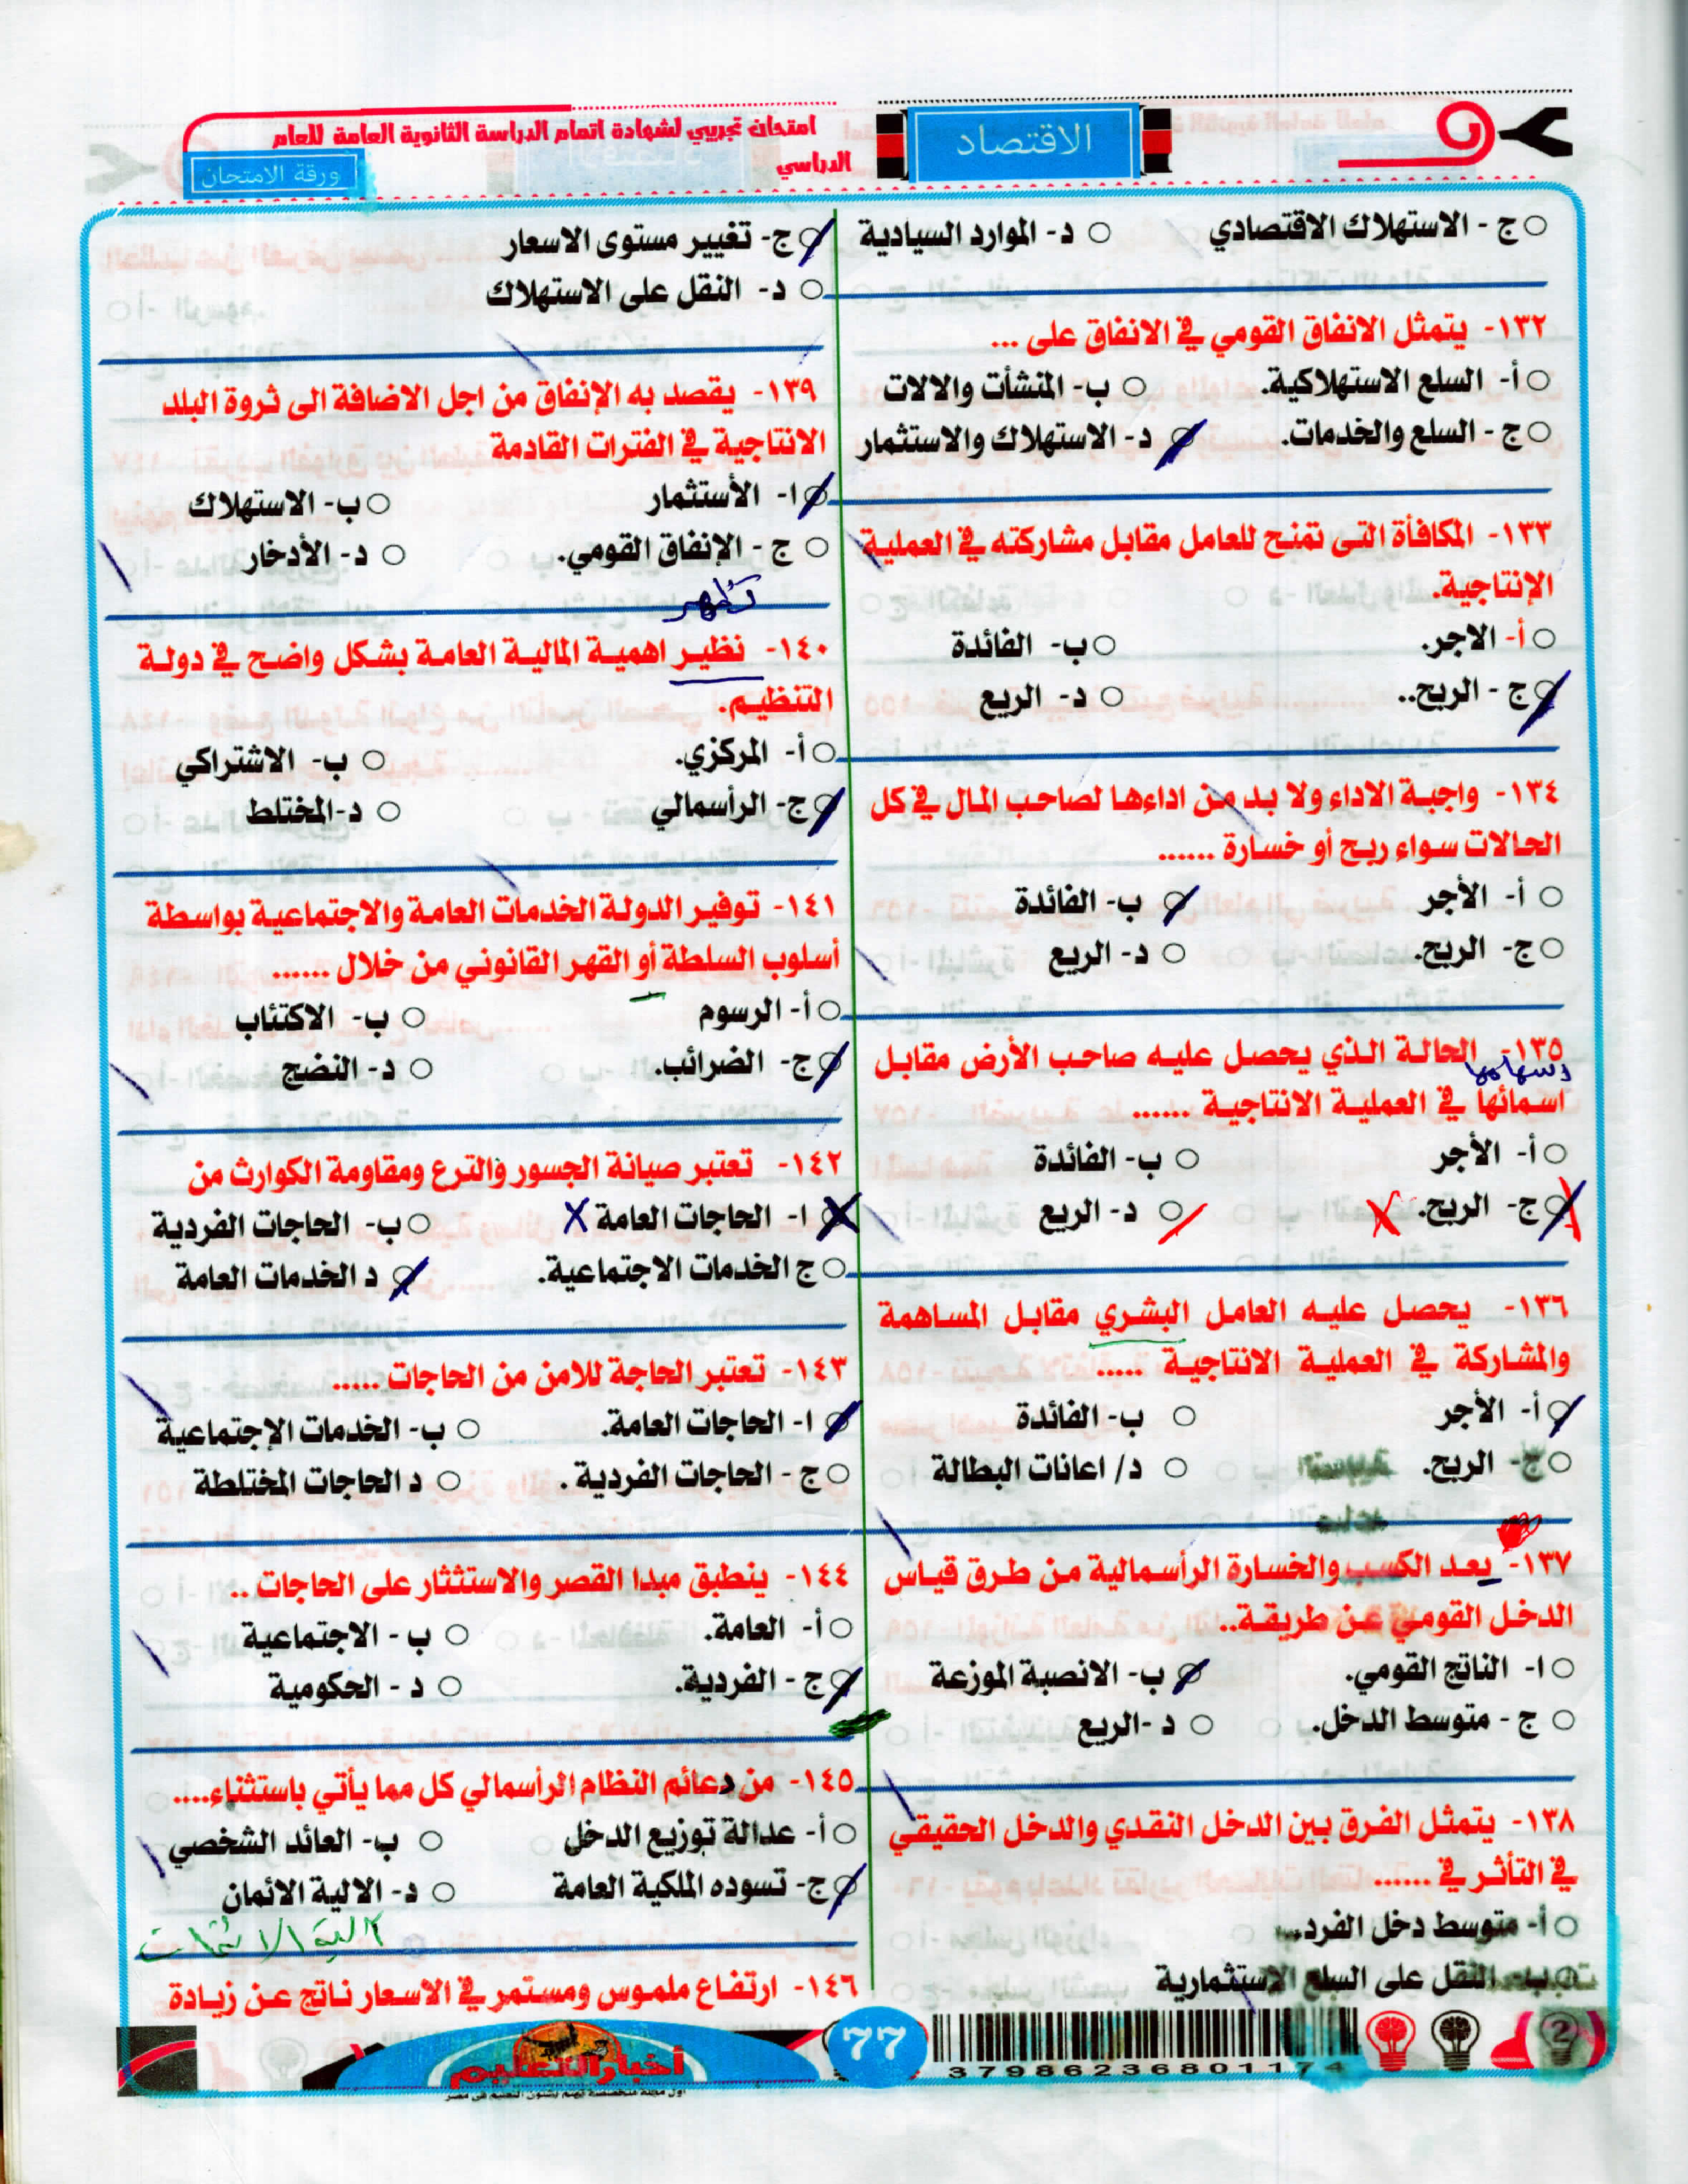 امتحان تجريبي لشهادة اتمام الدراسة الثانوية العامة للعام
الدراسي
ورقة الامتحان
الاقتصاد
ج - الاستهلاك الاقتصادي
د- الموارد السيادية
١٣٢- يتمثل الانفاق القومي في الانفاق على ...
أ- السلع الاستهلاكية.
ب- المنشأت والالات
ج - السلع والخدمات.
د- الاستهلاك والاستثمار
١٣٣- المكافأة التى تمنح للعامل مقابل مشاركته في العملية
الإنتاجية.
أ- الاجر.
ب- الفائدة
ج - الربح..
د- الريع
١٣٤- واجبة الاداء ولا بد من اداءها لصاحب المال في كل
الحالات سواء ربح أو خسارة ......
أ- الأجر
ب- الفائدة
ج- الربح.
د- الريع
١٣٥- الحالة الذي يحصل عليه صاحب الأرض مقابل
اسمائها في العملية الانتاجية ......
أ- الأجر
ب- الفائدة
ج- الربح.
د- الريع
١٣٦- يحصل عليه العامل البشري مقابل المساهمة
والمشاركة في العملية الانتاجية .....
أ- الأجر
ب- الفائدة
ج- الربح.
د/ اعانات البطالة
١٣٧- يعد الكسب والخسارة الرأسمالية من طرق قياس
الدخل القومي عن طريقة..
ا- الناتج القومي.
ب- الانصبة الموزعة
ج - متوسط الدخل.
د -الريع
١٣٨- يتمثل الفرق بين الدخل النقدي والدخل الحقيقي
في التأثر في ......
أ- متوسط دخل الفرد.
ب- النقل على السلع الاستثمارية
ج- تغيير مستوى الاسعار
د- النقل على الاستهلاك
١٣٩- يقصد به الإنفاق من اجل الاضافة الى ثروة البلد
الانتاجية في الفترات القادمة
ا- الأستثمار
ب- الاستهلاك
ج - الإنفاق القومي.
د- الأدخار
تظهر
١٤٠- نظير اهمية المالية العامة بشكل واضح في دولة
التنظيم.
أ- المركزي.
ب- الاشتراكي
ج- الرأسمالي
د-المختلط
١٤١- توفير الدولة الخدمات العامة والاجتماعية بواسطة
أسلوب السلطة أو القهر القانوني من خلال ......
أ- الرسوم
ب- الاكتئاب
ج- الضرائب.
د- النضج
١٤٢- تعتبر صيانة الجسور والترع ومقاومة الكوارث من
ا- الحاجات العامة
ب- الحاجات الفردية
ج الخدمات الاجتماعية.
د الخدمات العامة
١٤٣- تعتبر الحاجة للامن من الحاجات .....
ا- الحاجات العامة.
ب- الخدمات الإجتماعية
ج - الحاجات الفردية .
د الحاجات المختلطة
١٤٤- ينطبق مبدا القصر والاستئثار على الحاجات ..
أ- العامة.
ب - الاجتماعية
ج - الفردية.
د - الحكومية
١٤٥- من دعائم النظام الرأسمالي كل مما يأتي باستثناء....
أ- عدالة توزيع الدخل
ب- العائد الشخصي
ج- تسوده الملكية العامة
د- الالية الائمان
١٤٦- ارتفاع ملموس ومستمر في الاسعار ناتج عن زيادة
77
37986236801174
أخبار التعليم